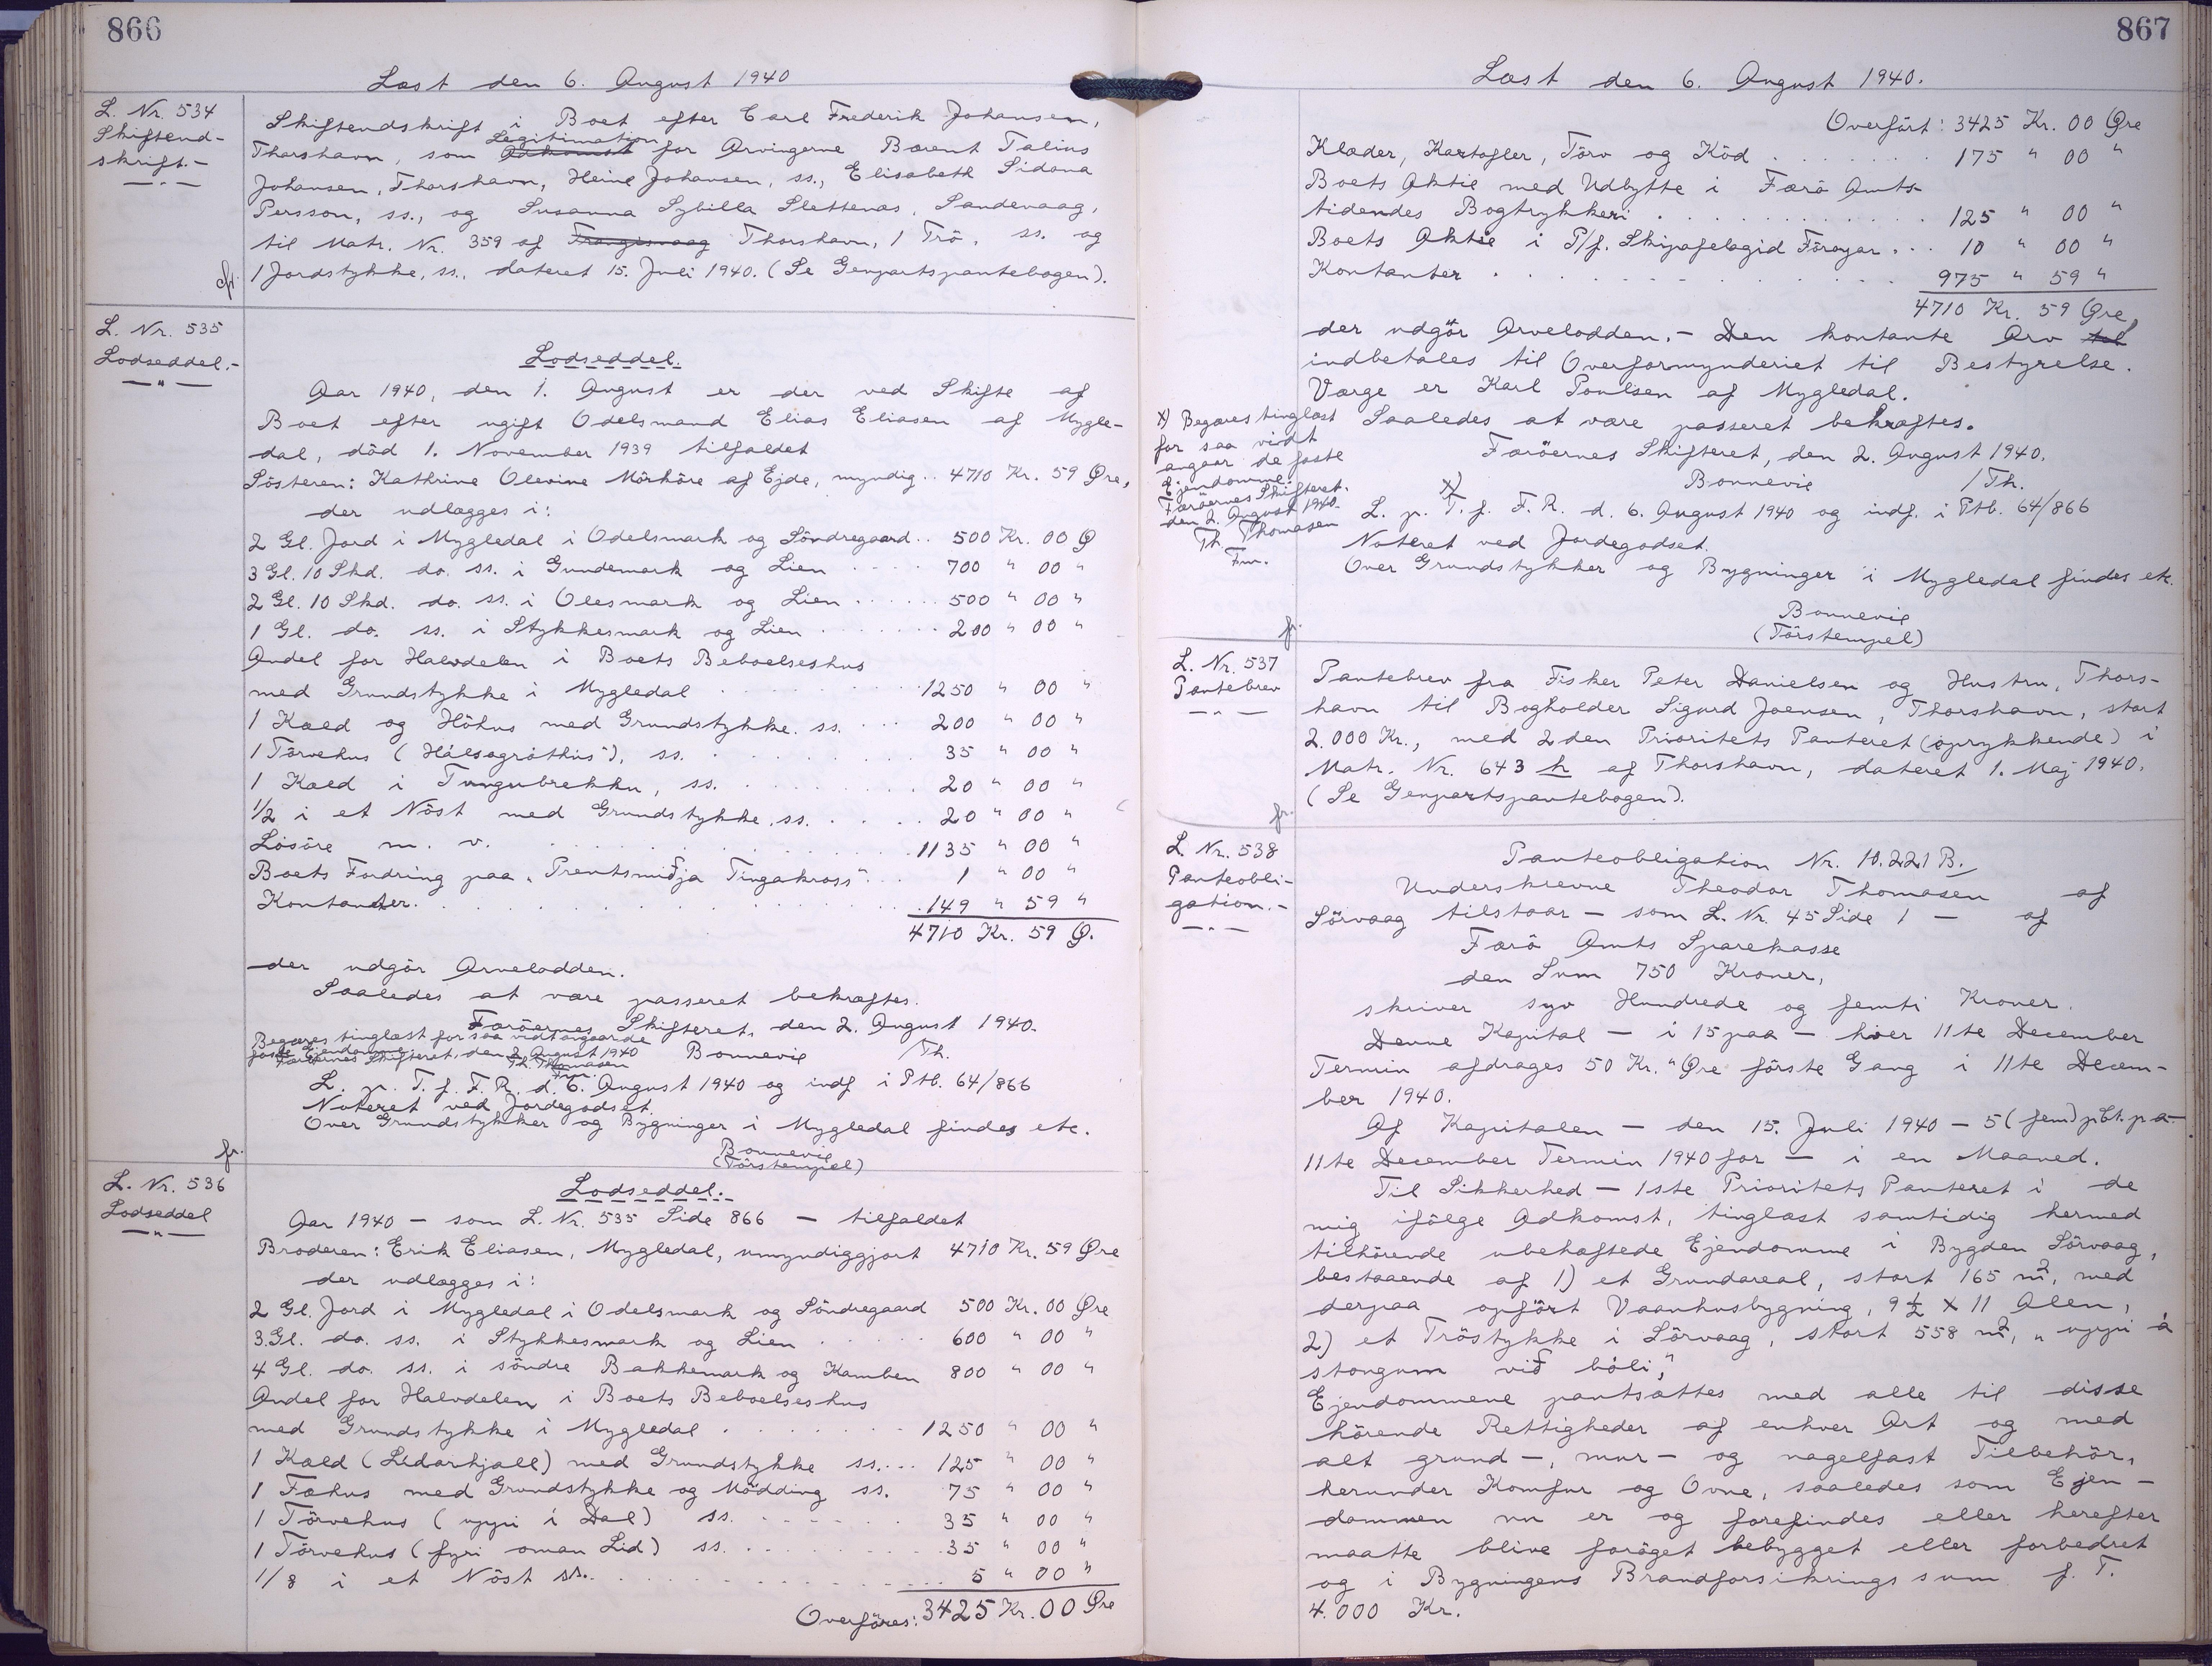 866
Læst den 6. August 1940
L. Nr. 534
Skiftend-
skrift.-
Skifteudskrift i Boet efter Carl Frederik Johansen,
Legitimation
Thorshavn, som Adkomst for Arvingerne Bærent Talius
Johansen, Thorshavn, Heine Johansen, ss., Elisabeth Sidona
Persson, ss., og Susanna Sybilla Slettenæs, Sandevaag,
til Matr. Nr. 359 af Frangisvaag Thorshavn, 1 Trö, ss. og
1 Jordstykke, ss., dateret 15. Juli 1940. (Se Genpartspantebogen).
L. Nr. 535
Lodseddel.-
Lodseddel.
Aar 1940, den 1. August er der ved Skifte af
Boet efter ugift Odelsmand Elias Eliasen af Mygle-
dal, död 1. November 1939 tilfaldet
Sösteren: Kathrine Olevine Mörköre af Ejde, myndig.. 4710 Kr. 59 Øre,
der udlægges i:
2 Gl. Jord i Mygledal i Odelsmark og Söndregaard.. 500 Kr. 00 Ø
3 Gl. 10 Skd. do. ss. i Gundemark og Lien .... 700 " 00 "
2 Gl. 10 Skd. do. ss. i Olesmark og Lien ...... 500 " 00 "
1 Gl. do. ss. i Stykkesmark og Lien ....... 200 " 00 "
Andel for Halvdelen i Boets Beboelseshus
med Grundstykke i Mygledal .......... 1250 " 00 "
1 Kæld og Höhus med Grundstykke. ss. ... 200 " 00 "
1 Törvehus (Hálsagróthús"), ss. .......... 35 " 00 "
1 Kæld i Tungubrekku, ss. ......... 20 " 00 "
1/2 i et Nöst med Grundstykke, ss. ..... 20 " 00 "
Lösöre m. v. ............ 1135 " 00 "
Boets Fordring paa "Prentsmiðja Tingakross"... 1 " 00 "
Kontanter. ................ 149 " 59 "
4710 Kr. 59 Ø.
der udgör Arvelodden.
Saaledes at være passeret bekræftes.
Færöernes Skifteret, den 2. August 1940.
Begæres tinglæst for saa vidt angaar de
faste Ejendomme
Færöernes Skifteret, den 2. August 1940 Bonnevie /Th.
Th. Thomasen
Fm.
L. p. T. f. F. R. d. 6. August 1940 og indf i Ptb. 64/866
Noteret ved Jordegodset.
Over Grundstykker og Bygninger i Mygledal findes etc.
fr.
Bonnevie
(Törstempel)
L. Nr. 536
Lodseddel
Lodseddel.
Aar 1940 - som L. Nr. 535 Side 866 - tilfaldet
Broderen: Erik Eliasen, Mygledal, umyndiggjort 4710 Kr. 59 Øre
der udlægges i:
2 Gl. Jord i Mygledal i Odelsmark og Söndregaard 500 Kr. 00 Øre
3. Gl. do. ss. i Stykkesmark og Lien ..... 600 " 00 "
4 Gl. do. ss. i söndre Bakkemark og Kamben 800 " 00 "
Andel for Halvdelen i Boets Beboelseshus
med Grundstykke i Mygledal ....... 1250 " 00 "
1 Kæld (Lidarhjall) med Grundstykke ss.... 125 " 00 "
1 Fæhus med Grundstykke og Mödding ss. 75 " 00 "
1 Törvehus (uppi i Dal) ss. ...... 35 " 00 "
1 Törvehus (fyri oman Lid) ss. ......... 35 " 00 "
1/8 i et Nöst ss. ............... 5 " 00 "
Overföres: 3425 Kr. 00 Øre
867
Læst den 6. August 1940.
Overfört: 3425 Kr. 00 Øre
Klæder, Kartofler, Törv og Köd ....... 175 " 00 "
Boets Aktie med Udbytte i Færö Amts-
tidendes Bogtrykkeri ............ 125 " 00 "
Boets Aktie i P/f. Skipafelagid Föroyar... 10 " 00 "
Kontanter ............ 975 " 59 "
4710 Kr. 59 Øre,
der udgör Arvelodden.- Den kontante Arv til
indbetales til Overformynderiet til Bestyrelse.
Værge er Karl Poulsen af Mygledal.
Saaledes at være passeret bekræftes.
x) Begæres tinglæst
for saa vidt
angaar de faste
Ejendomme.
Færöernes Skifteret.
den 2. August 1940.
Th. Thomasen
Fm.
Færöernes Skifteret, den 2. August 1940.
Bonnevie /Th.
x)
L. p. T. f. F. R. d. 6. August 1940 og indf. i Ptb. 64/866
Noteret ved Jordegodset.
Over Grundstykker og Bygninger i Mygledal findes etc.
Bonnevie
(Törstempel)
fr.
L. Nr. 537
Pantebrev
Pantebrev fra Fisker Peter Danielsen og Hustru, Thors-
havn til Bogholder Sigurd Joensen, Thorshavn, stort
2.000 Kr., med 2den Prioritets Panteret (oprykkende) i
Matr. Nr. 643 h af Thorshavn, dateret 1. Maj 1940.
(Se Genpartspantebogen).
fr.
L. Nr. 538
Panteobli-
gation.-
Panteobligation Nr. 10.221 B.
Underskrevne Theodor Thomasen af
Sörvaag tilstaar - som L. Nr. 45 Side 1 - af
Færö Amts Sparekasse
den Sum 750 Kroner,
skriver syv Hundrede og femti Kroner.
Denne Kapital - i 15 paa - hver 11te December
Termin afdrages 50 Kr. " Øre förste Gang i 11te Decem-
ber 1940.
Af Kapitalen - den 15. Juli 1940 - 5 (fem) pCt. p a.
11te December Termin 1940 for - i en Maaned.
Til Sikkerhed - 1ste Prioritets Panteret i de
mig ifölge Adkomst, tinglæst samtidig hermed
tilhörende ubehæftede Ejendomme i Bygden Sörvaag,
bestaaende af 1) et Grundareal, stort 165 m², med
derpaa opfört Vaanhusbygning, 9½ x 11 Alen,
2) et Tröstykke i Sörvaag, stort 558 m², "uppi á
stongum við bóli",
Ejendommene pantsættes med alle til disse
hörende Rettigheder af enhver Art og med
alt grund-, mur- og nagelfast Tilbehör,
herunder Komfur og Ovne, saaledes som Ejen-
dommen nu er og forefindes eller herefter
maatte blive foröget bebygget eller forbedret
og i Bygningens Brandforsikringssum f. T.
4.000 Kr.